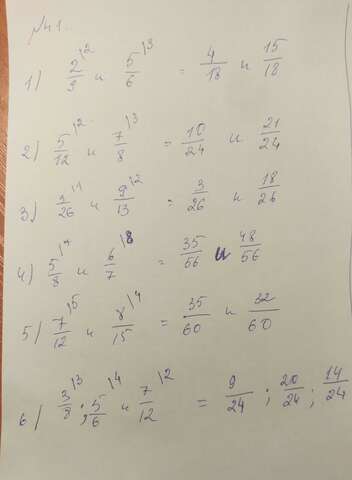 №1.
1) 2/9 \2 и 5/6 \3 = 4/18 и 15/18
2) 5/12 \2 и 7/8 \3 = 10/24 и 21/24
3) 3/26 \1 и 9/13 \2 = 3/26 и 18/26
4) 5/8 \7 и 6/7 \8 = 35/56 и 48/56
5) 7/12 \5 и 8/15 \4 = 35/60 и 32/60
6) 3/8 \3 ; 5/6 \4 и 7/12 \2 = 9/24 ; 20/24 ; 14/24